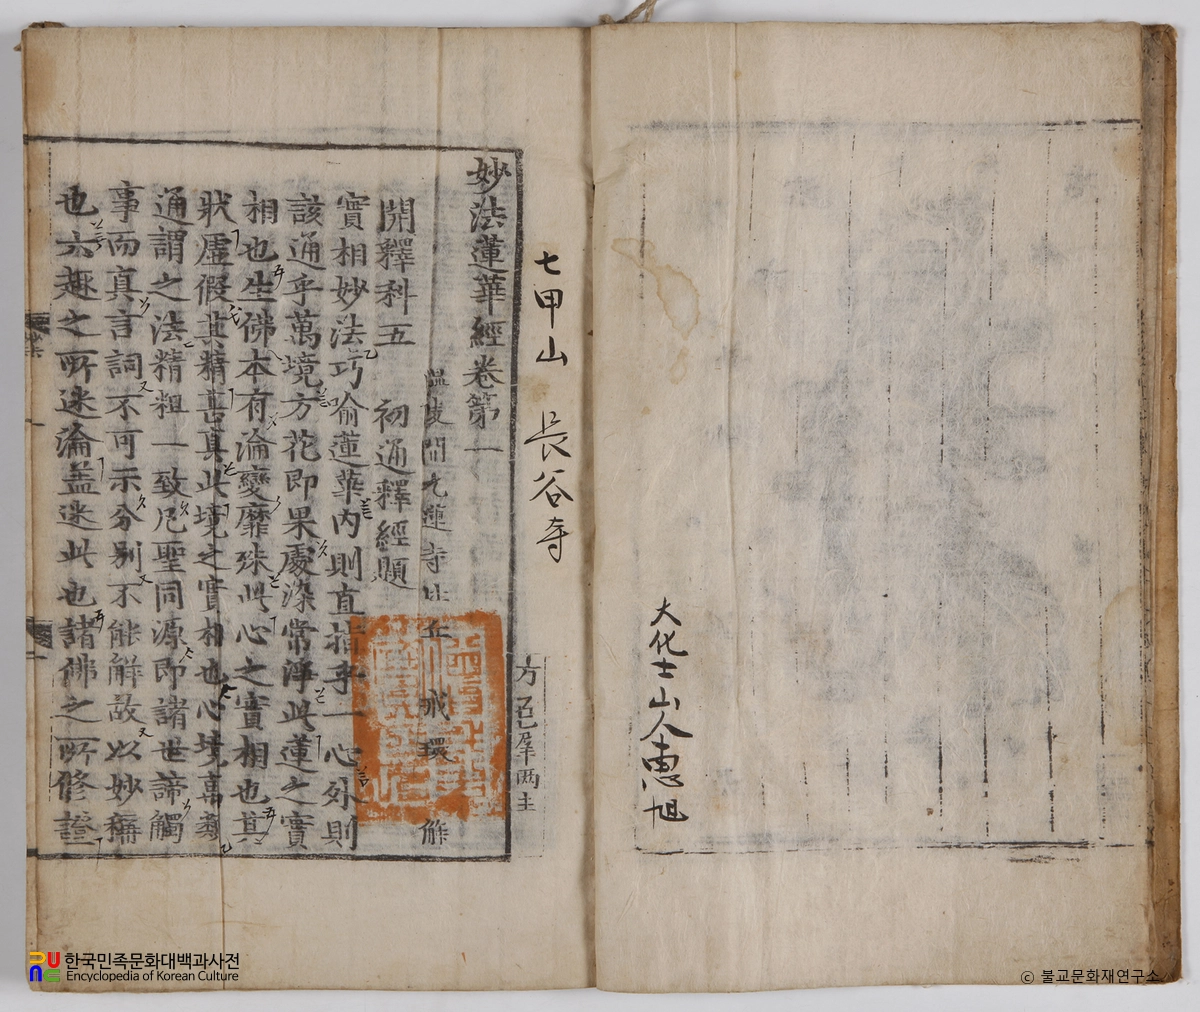 大化士山人惠旭
七甲山 長谷寺
妙法蓮華經卷第一
溫陵開元蓮寺比丘 戒環 解
開釋科五 初通釋經題
實相妙法巧喻蓮華内則直指乎一心外則
該通乎萬境方花即果處染常淨此蓮之實
相也生佛本有淪變靡殊此心之實相也其
狀虛假其精甚真此境之實相也心境萬類
通謂之法精粗一致凡聖同源即諸世諦觸
事而真言詞不可示分别不能解故以妙稱
也六趣之所迷淪盖迷此也諸佛之所修證
한국민족문화대백과사전
Encyclopedia of Korean Culture
© 불교문화재연구소